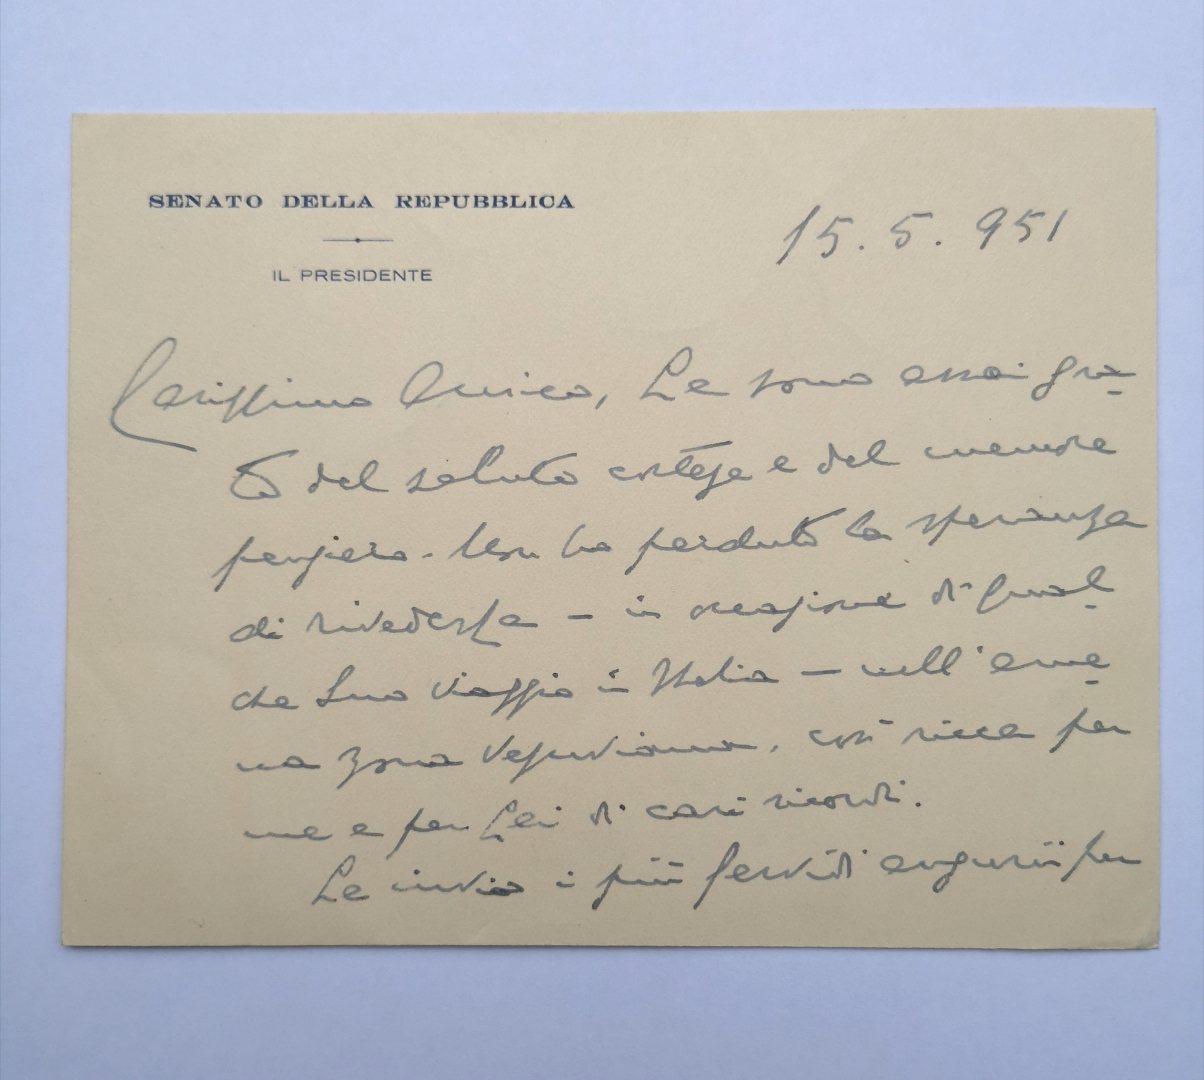 SENATO DELLA REPUBBLICA
IL PRESIDENTE
15.5.951
Carissimo Amico, Le sono assai gra-
to del saluto cortese e del memore
pensiero. Non ho perduto la speranza
di rivederLa - in occasione di qual-
che Suo viaggio in Italia - nell'ame-
na zona Vesuviana, così ricca per
me e per Lei di cari ricordi.
Le invio i più fervidi auguri per